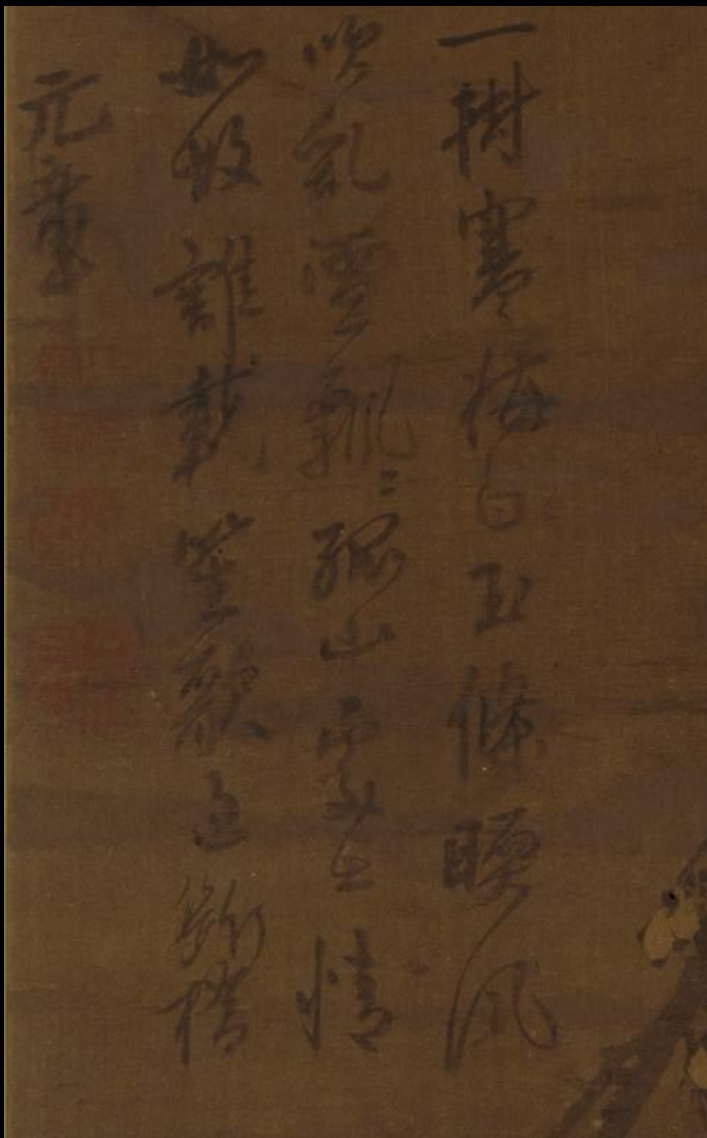 一樹寒梅白玉條暖風
吹亂雪飄〻孤山處士情
如故誰載笙歌過斷橋
元章